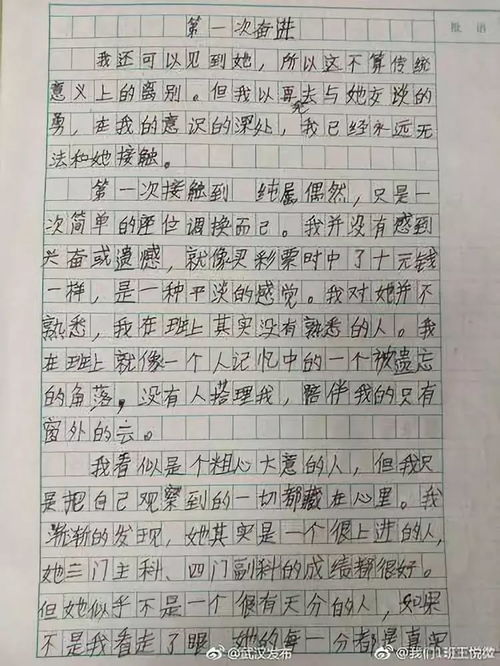 批语
第一次奋进
我还可以见到她，所以这不算传统
意义上的离别。但我以再去与她交谈的
勇，在我的意识的深处，我已经永远无
法和她接触。
第一次接触到 纯属偶然，只是一
次简单的座位调换而已。我并没有感到
兴奋或遗憾，就像买彩票时中了十元钱
一样，是一种平淡的感觉。我对她并不
熟悉，我在班上其实没有熟悉的人。我
在班上就像一个人记忆中的一个被遗忘
的角落，没有人搭理我，陪伴我的只有
窗外的云。
我看似是个粗心大意的人，但我只
是把自己观察到的一切都藏在心里。我
渐渐的发现，她其实是一个很上进的人，
她三门主科、四门副科的成绩都很好。
但她似乎不是一个很有天分的人，如果
不是我看走了眼，她的每一分都是真实
@武汉发布
@我们1班王悦微